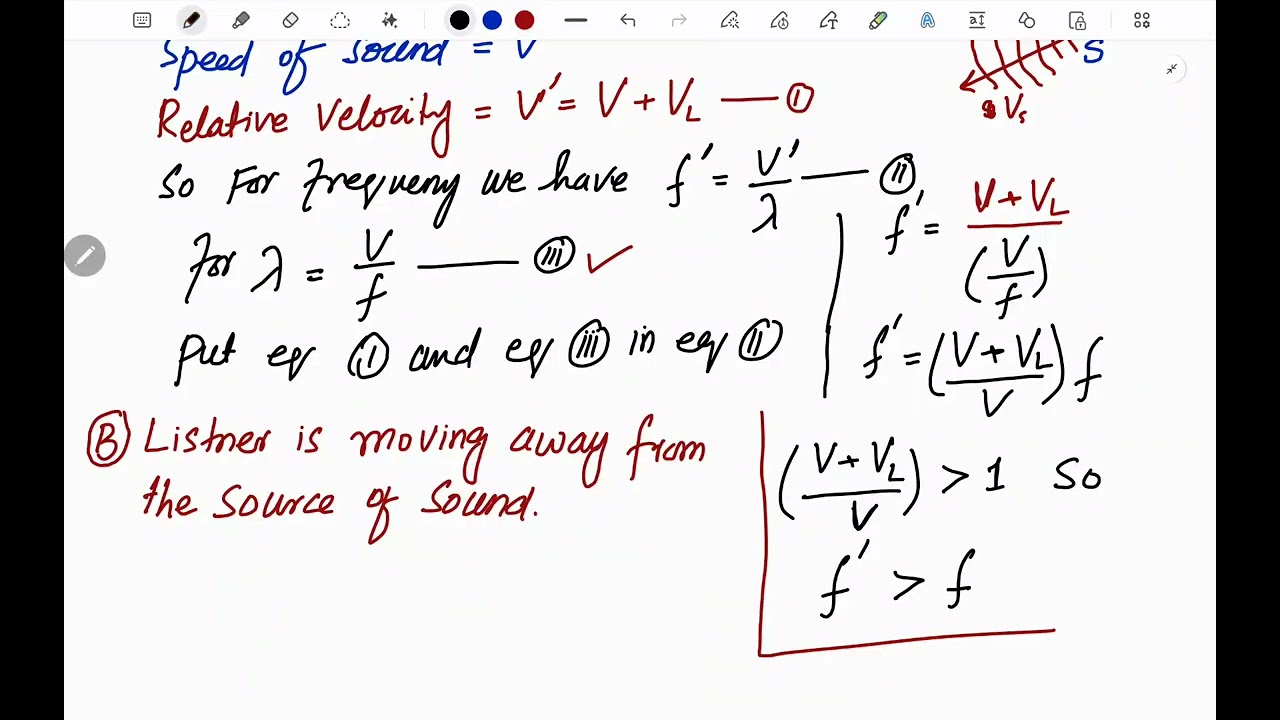 Speed of Sound = V
S
Vs
Relative Velocity = V' = V + VL —— (i)
So For Frequeny we have f' = V'/λ —— (ii)
For λ = V/f —— (iii) ✓
Put eq (i) and eq (iii) in eq (ii)
f' = (V + VL)/(V/f)
f' = ((V + VL)/V) f
((V + VL)/V) > 1 So
f' > f
(B) Listner is moving away from
the Source of Sound.